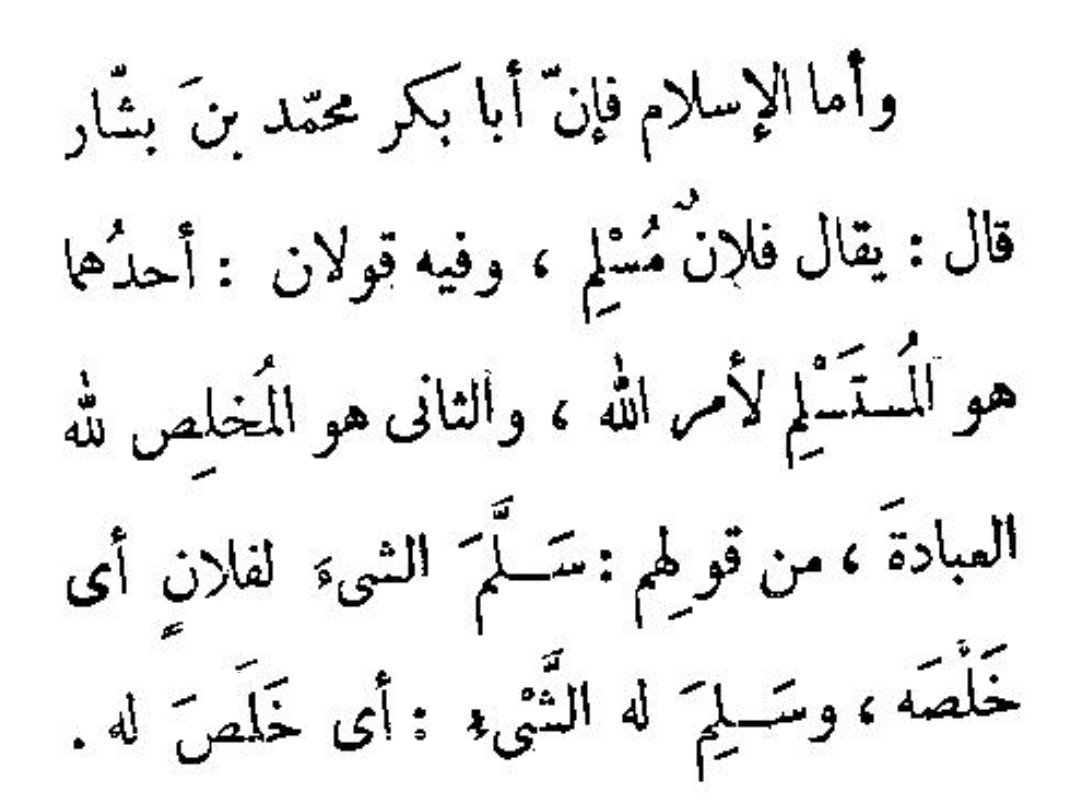 وأما الإسلام فإنّ أبا بكر محمّد بنَ بشّار
قال : يقال فلانٌ مُسْلِم ، وفيه قولان : أحدُهما
هو المُستَسْلِم لأمر الله ، والثانى هو المُخلِص لله
العبادةَ ، من قولِهم : سَلَّمَ الشىءَ لفلانٍ أى
خَلَّصَه ، وسَلِمَ له الشَّىْء : أى خَلَصَ له .